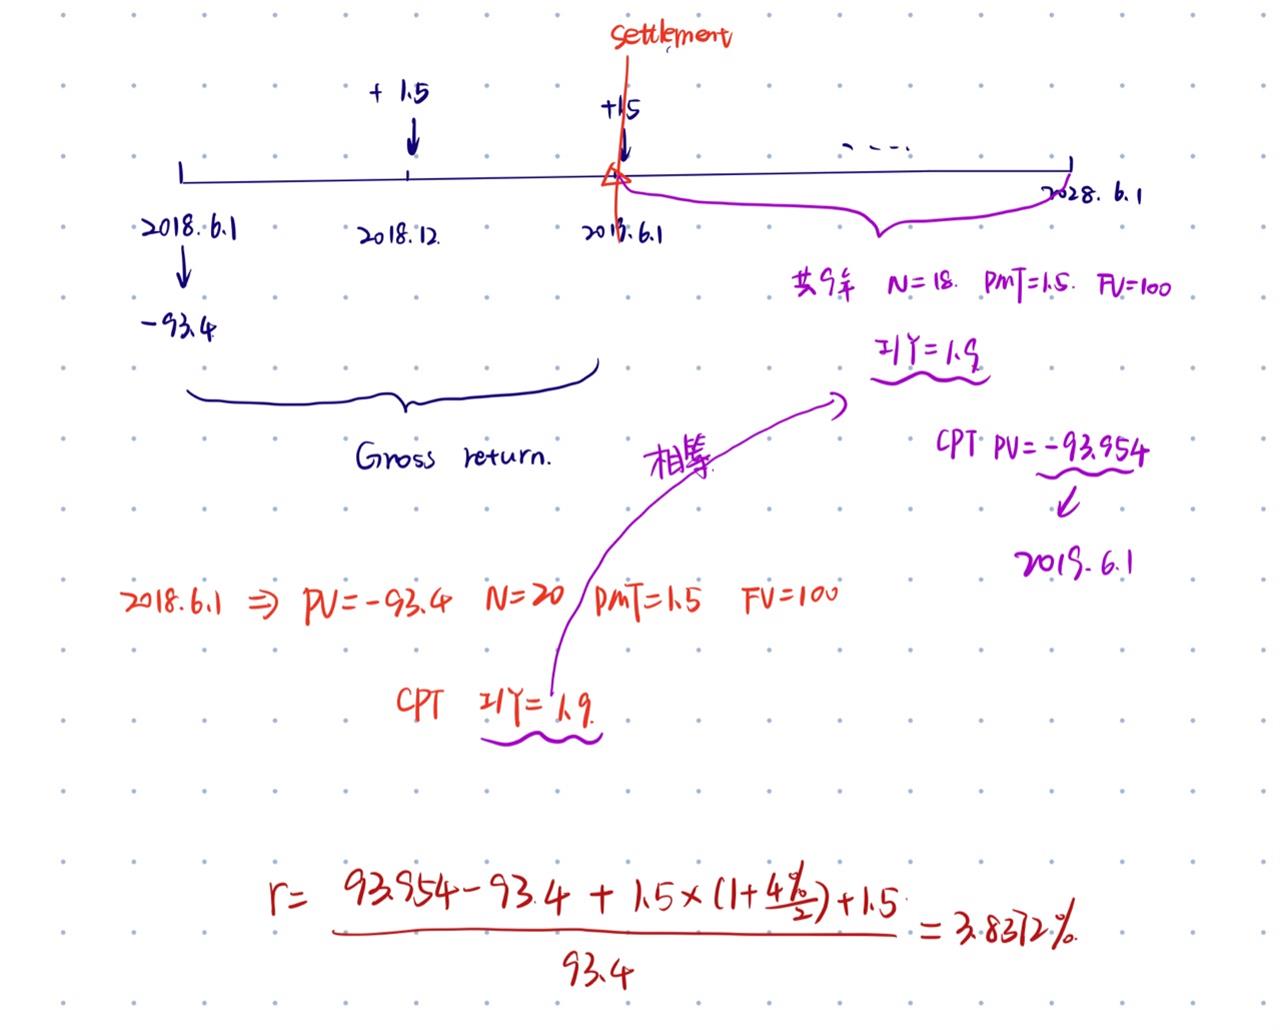 Settlement
+ 1.5
+1.5
2018. 6.1
2018.12.
2019.6.1
2028. 6.1
-93.4
共9年 N=18. PMT=1.5. FV=100
I/Y=1.9
Gross return.
相等
CPT PV=-93.954
2019.6.1
2018.6.1 ⇒ PV=-93.4 N=20 PMT=1.5 FV=100
CPT I/Y=1.9.
r= 93.954-93.4 + 1.5×(1+4%/2)+1.5 = 3.8372%.
93.4